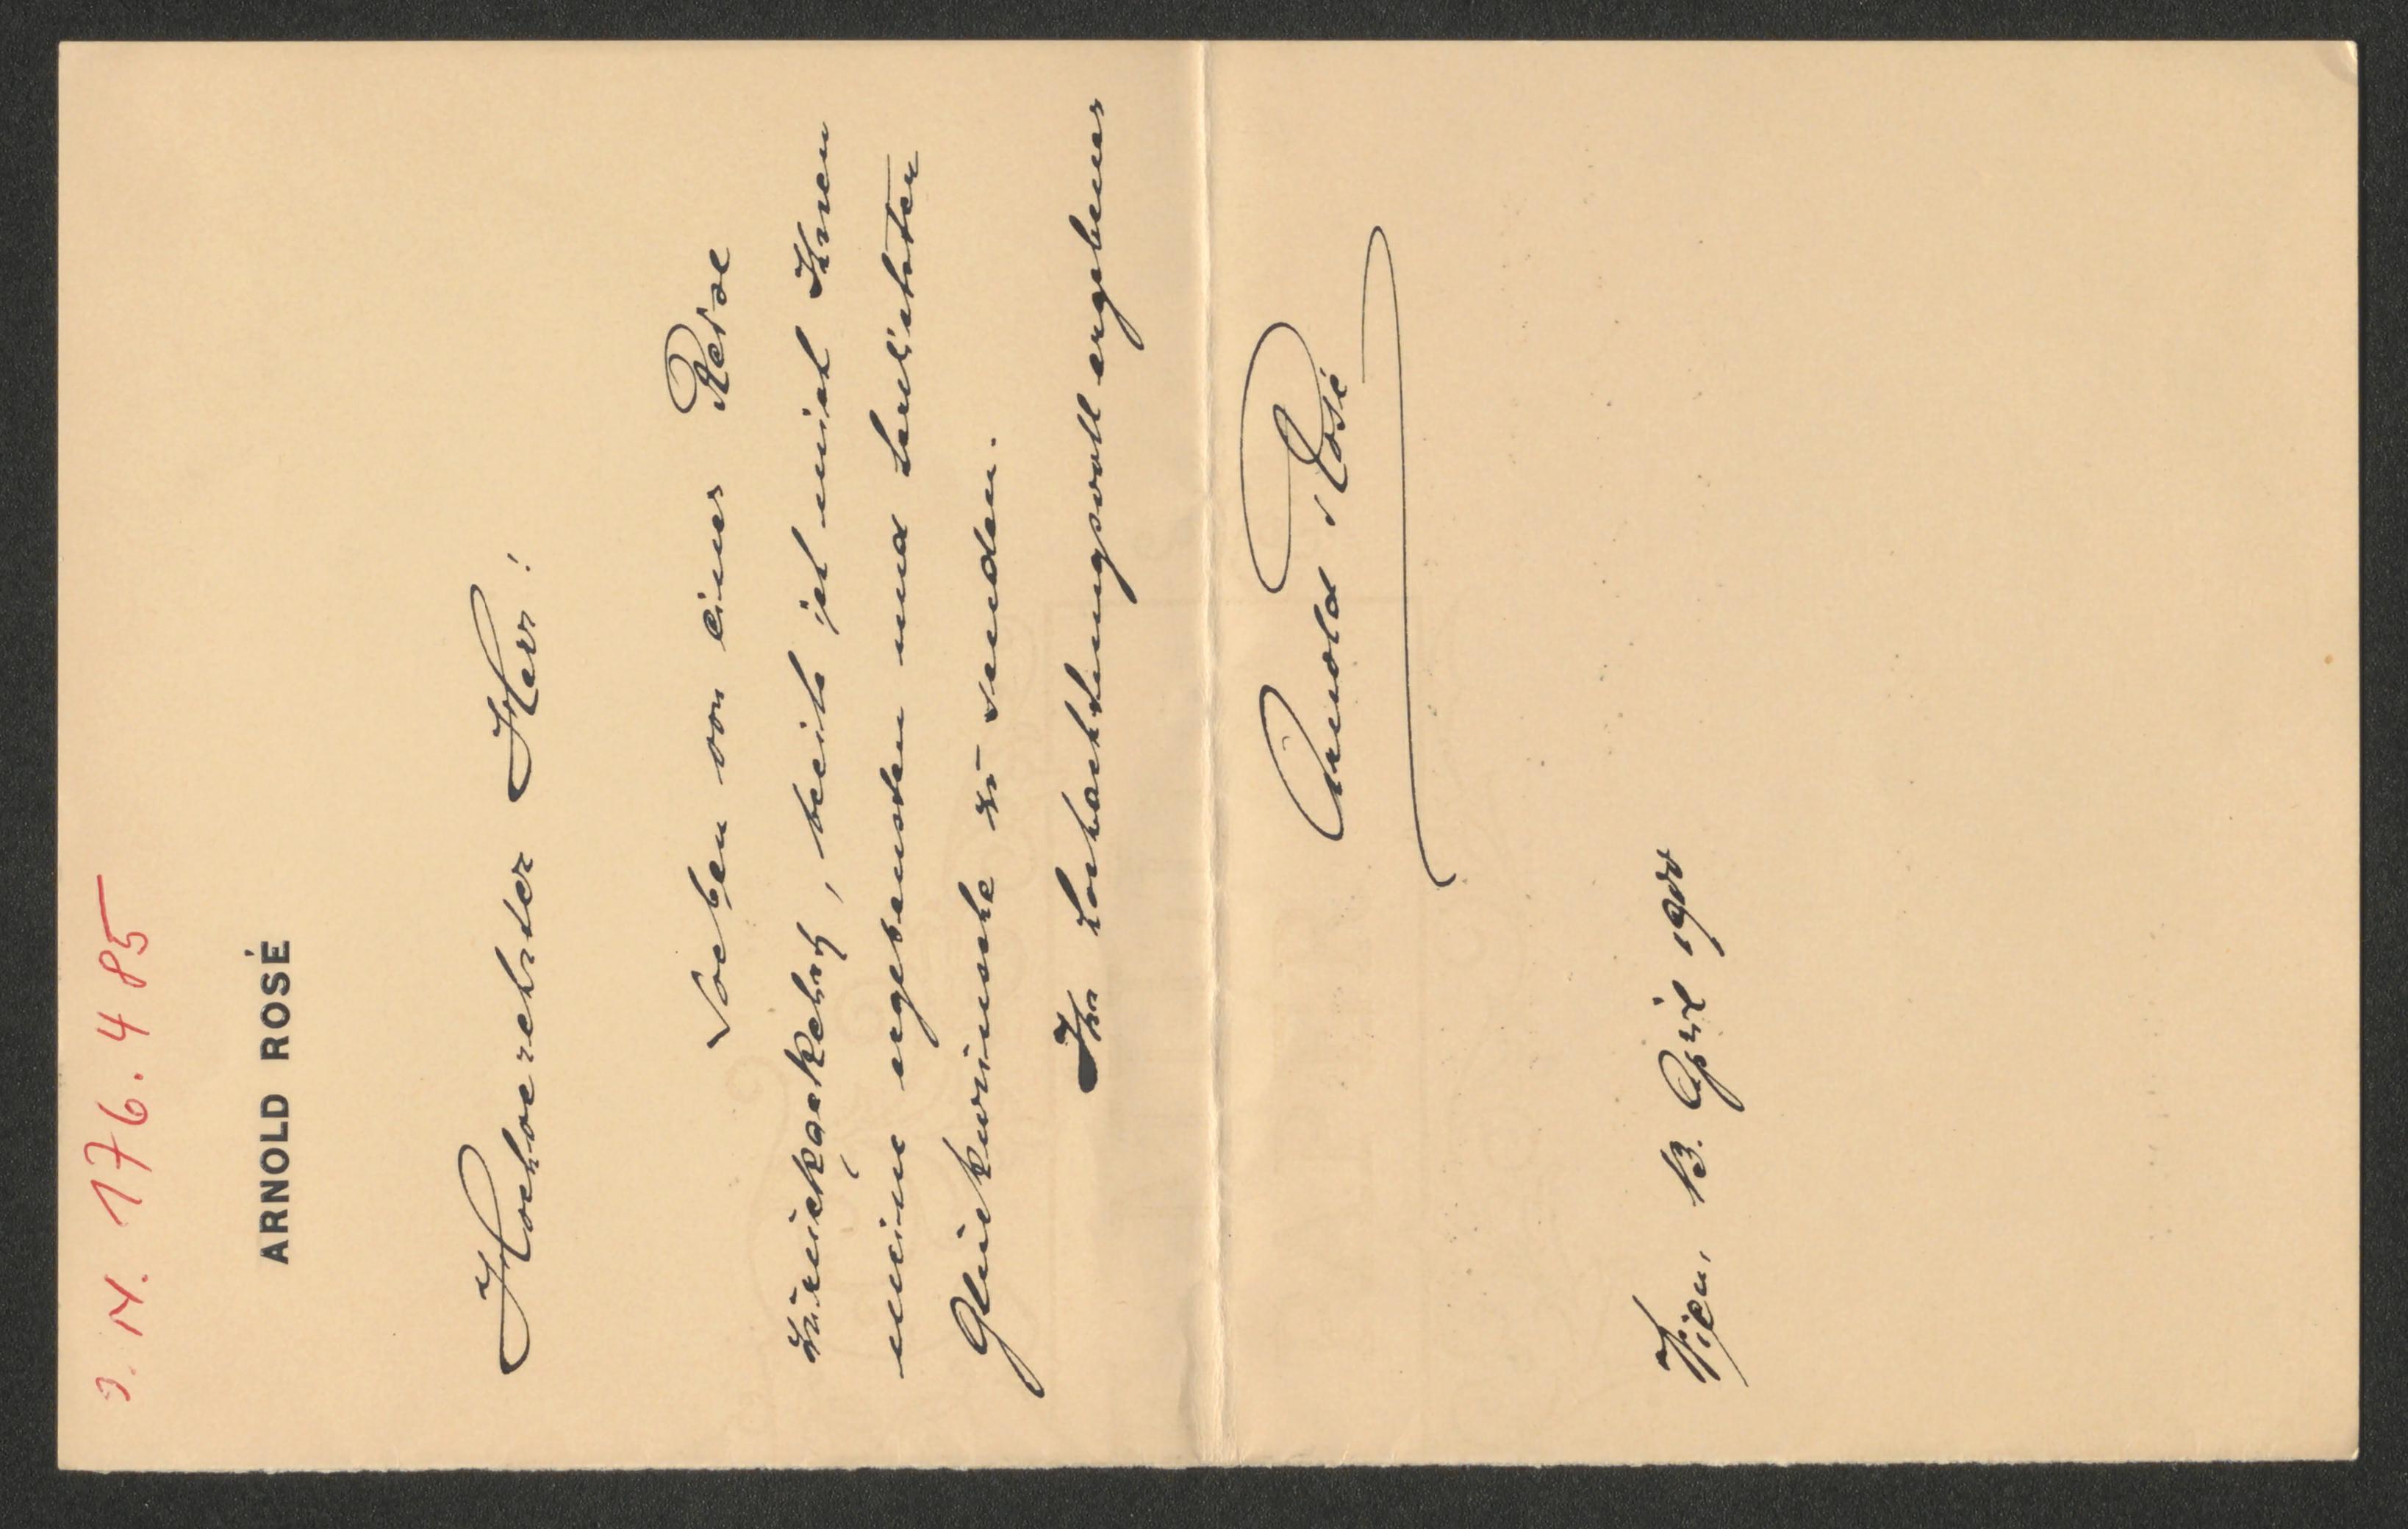 J. N. 176.485
ARNOLD ROSÉ
Hochverehrter Herr!
Soeben von einer Reise
zurückgekehrt, beeile ich mich Ihnen
meine ergebensten und herzlichsten
Glückwünsche zu senden.
Ihr hochachtungsvoll ergebener
Arnold Rosé
Wien, 13. April